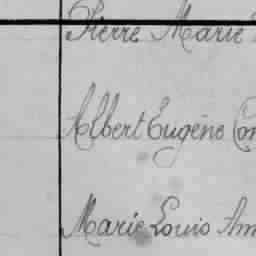 Pierre Marie
Albert Eugène Con
Marie Louis Am